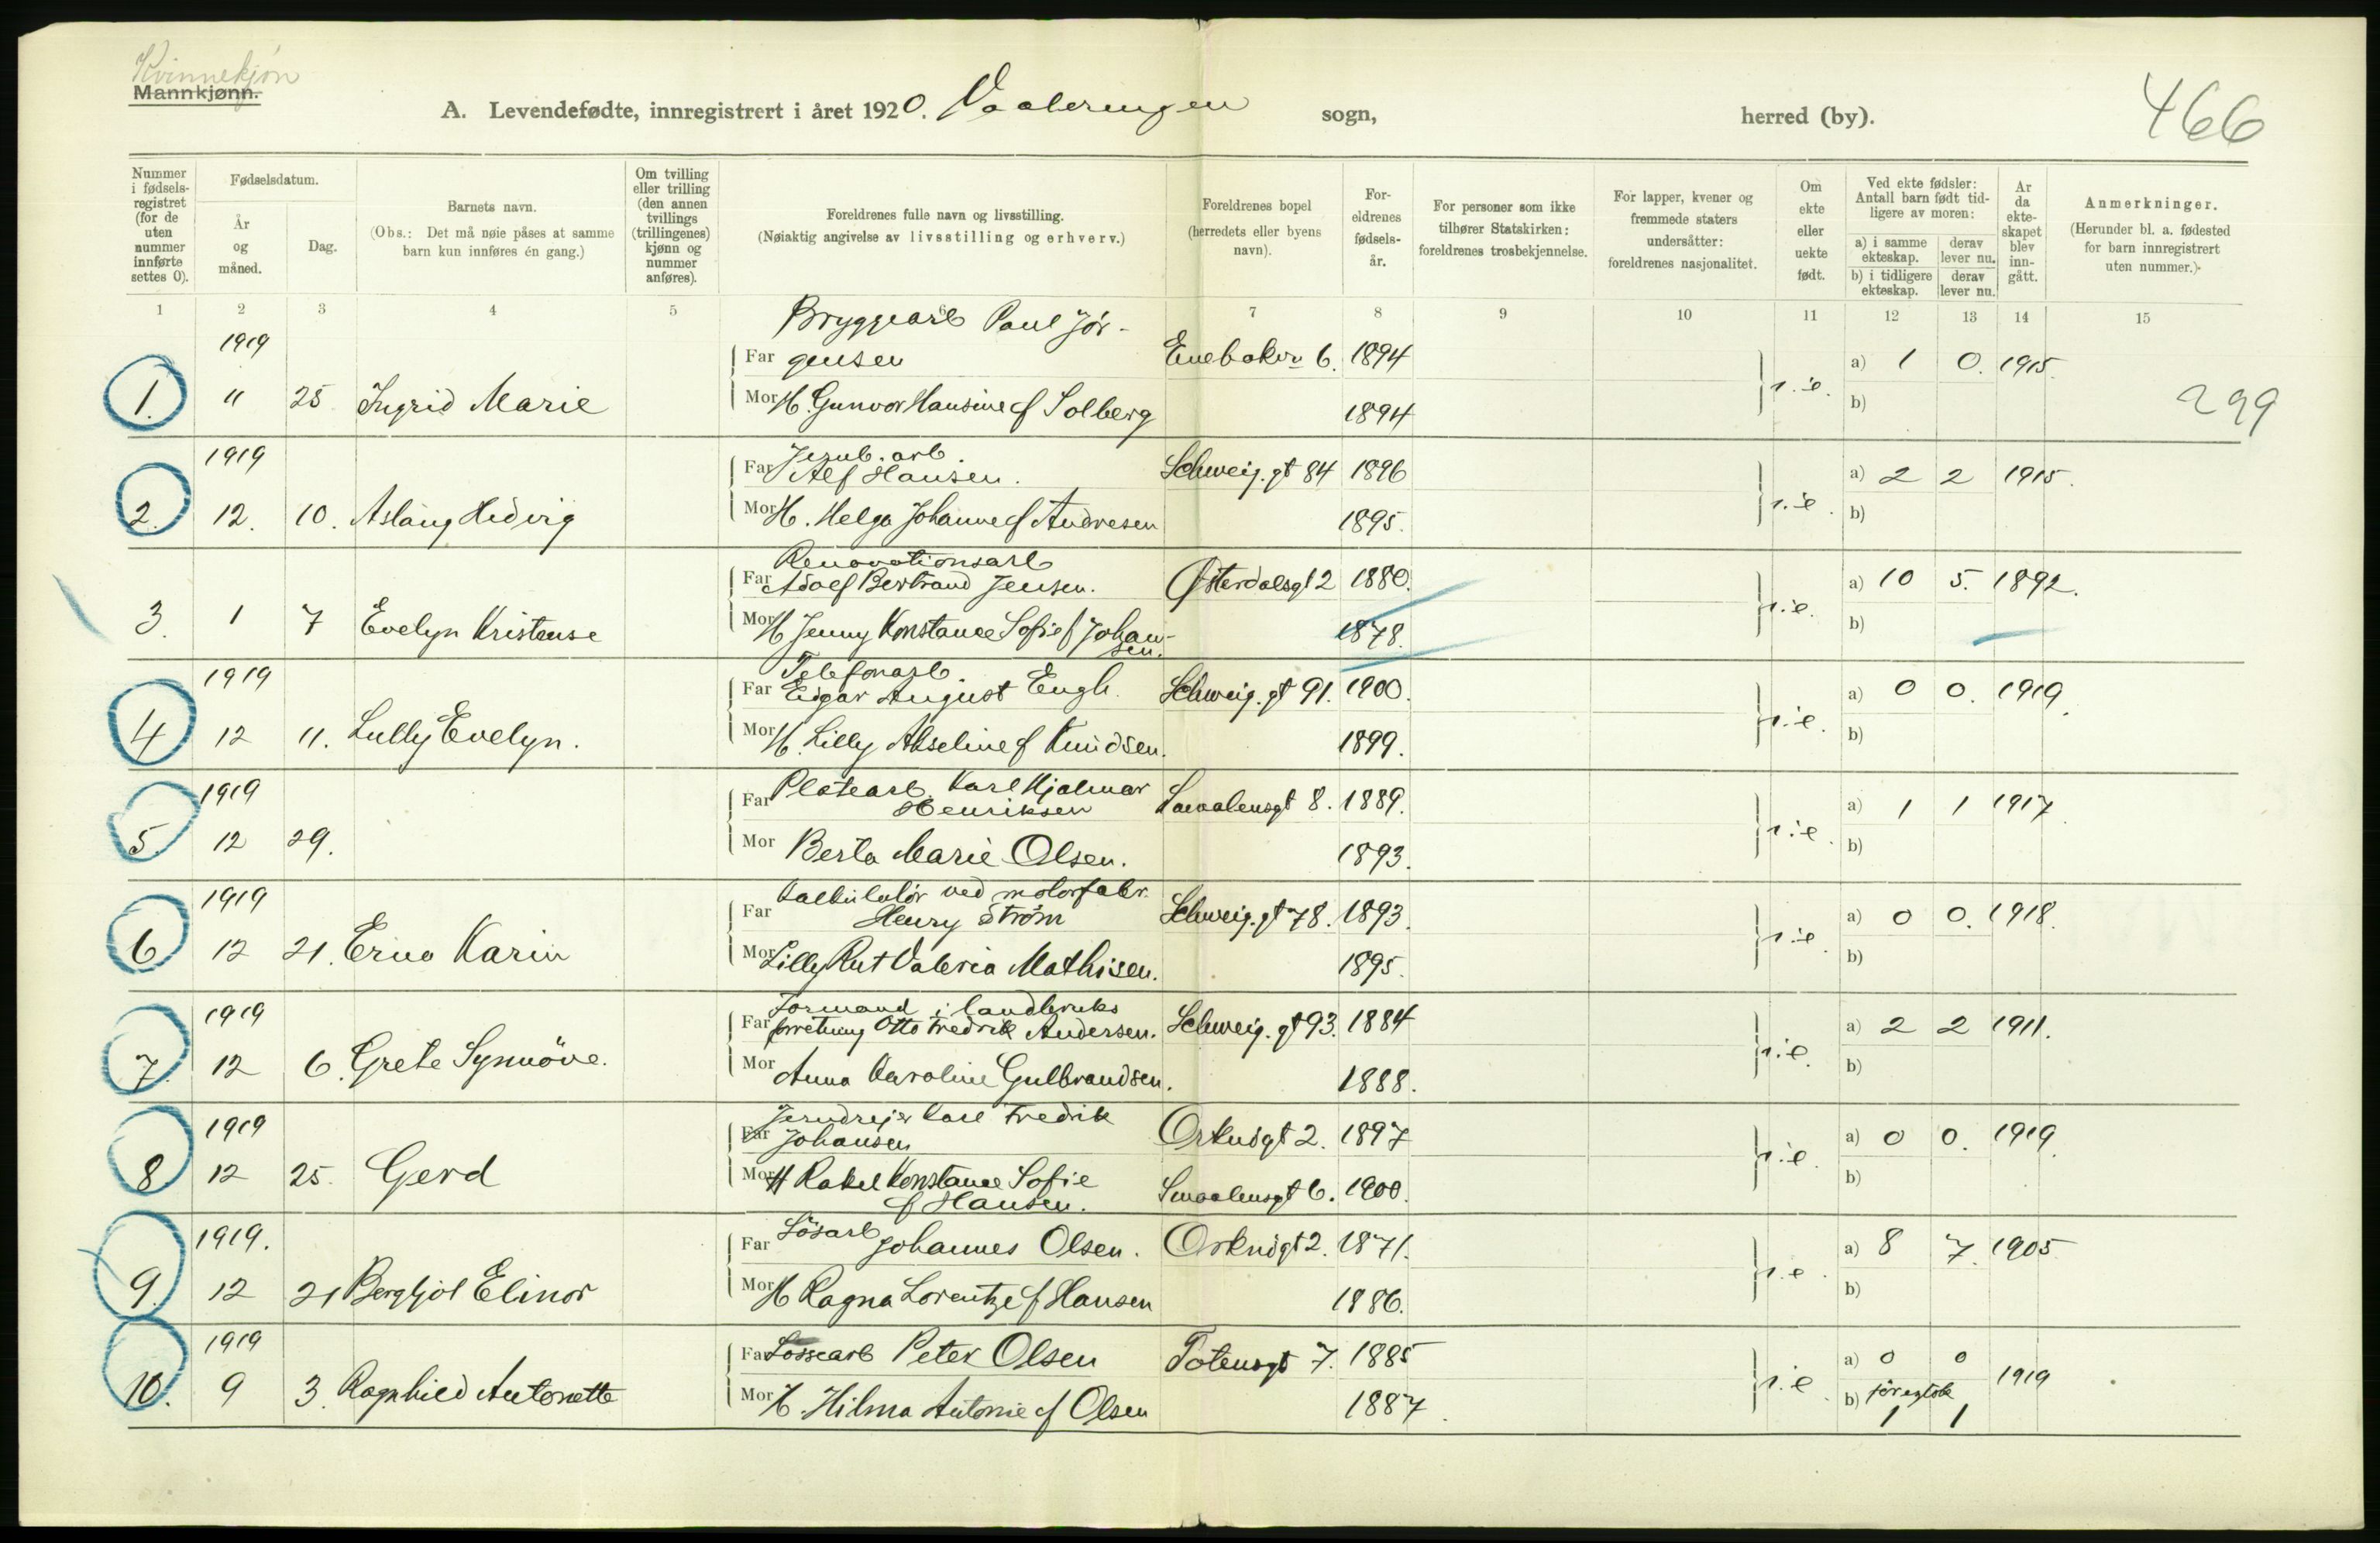 Kvinnekjøn
Mannkjønn.
A. Levendefødte, innregistrert i året 1920. Vaaleringen sogn, herred (by).
466
Nummer i fødselsregistret (for de uten nummer innførte settes 0).
Fødselsdatum.
År og måned.
Dag.
Barnets navn.
(Obs.: Det må nøie påses at samme barn kun innføres én gang.)
Om tvilling eller trilling (den annen tvillings (trillingenes) kjønn og nummer anføres).
Foreldrenes fulle navn og livsstilling.
(Nøiaktig angivelse av livsstilling og erhverv.)
Foreldrenes bopel (herredets eller byens navn).
Foreldrenes fødselsår.
For personer som ikke tilhører Statskirken: foreldrenes trosbekjennelse.
For lapper, kvener og fremmede staters undersåtter: foreldrenes nasjonalitet.
Om ekte eller uekte født.
Ved ekte fødsler: Antall barn født tidligere av moren:
a) i samme ekteskap. derav lever nu.
b) i tidligere ekteskap. derav lever nu.
År da ekteskapet blev inngått.
Anmerkninger.
(Herunder bl. a. fødested for barn innregistrert uten nummer.)
1 2 3 4 5 6 7 8 9 10 11 12 13 14 15
1919 Bryggearb Paul Jør-
Far gensen Enebakv 6. 1894 a) 1 0. 1915.
1. 11 25 Ingrid Marie Mor H. Gunvor Hansine f Solberg 1894 e. b)
299
1919 Jernb. arb.
Far Alf Hansen. Schweig. gt 84 1896 a) 2 2 1915.
2. 12. 10. Aslaug Hedvig Mor H. Helga Johanne f Andresen 1895. e. b)
Renovationsarb
Far Adolf Bertrand Jensen. Østerdalsgt 2 1880. a) 10 5. 1892.
3. 1 7 Evelyn Kristense Mor H Jenny Konstance Sofie f Johan- 1878. e. b)
sen.
1919 Telefonarb.
Far Edgar August Engh. Schweig. gt 91. 1900. a) 0 0. 1919.
4 12 11. Lully Evelyn. Mor H. Lilly Akseline f Knudsen. 1899. e. b)
1919 Far Platearb. Karl Hjalmar
Henriksen Smaalensgt 8. 1889. a) 1 1 1917
5. 12 29. Mor Berta Marie Olsen. 1893. e. b)
1919 Kalkulatør ved motorfabr.
Far Henry Strøm Schweig. gt 78. 1893. a) 0 0. 1918.
6 12 21. Erna Karin Mor Lilly Rut Valeria Mathisen. 1895. e. b)
1919 Formand i landbruks
Far forretning Otto Fredrik Andersen. Schweig. gt 93. 1884 a) 2 2 1911.
7. 12 6. Grete Synnöve. Mor Anna Karoline Gulbrandsen. 1888. e. b)
1919 Jerndreier Karl Fredrik
Far Johansen Orknögt 2. 1897 a) 0 0. 1919.
8 12 25. Gerd Mor H Rakel Konstance Sofie Smaalensgt 6. 1900. e. b)
f Hansen.
1919. Far Lösarb Johannes Olsen. Orknögt 2. 1871. a) 8 7. 1905.
9. 12 21 Bergljot Elinor Mor H Ragna Lorentze f Hansen 1886. e. b)
1919 Far Lossearb Peter Olsen Totensgt 7. 1885 a) 0 0 1919
10. 9 3. Ragnhild Antonette Mor H. Hilma Antonie f Olsen 1887. e. b) för egtsk
1 1